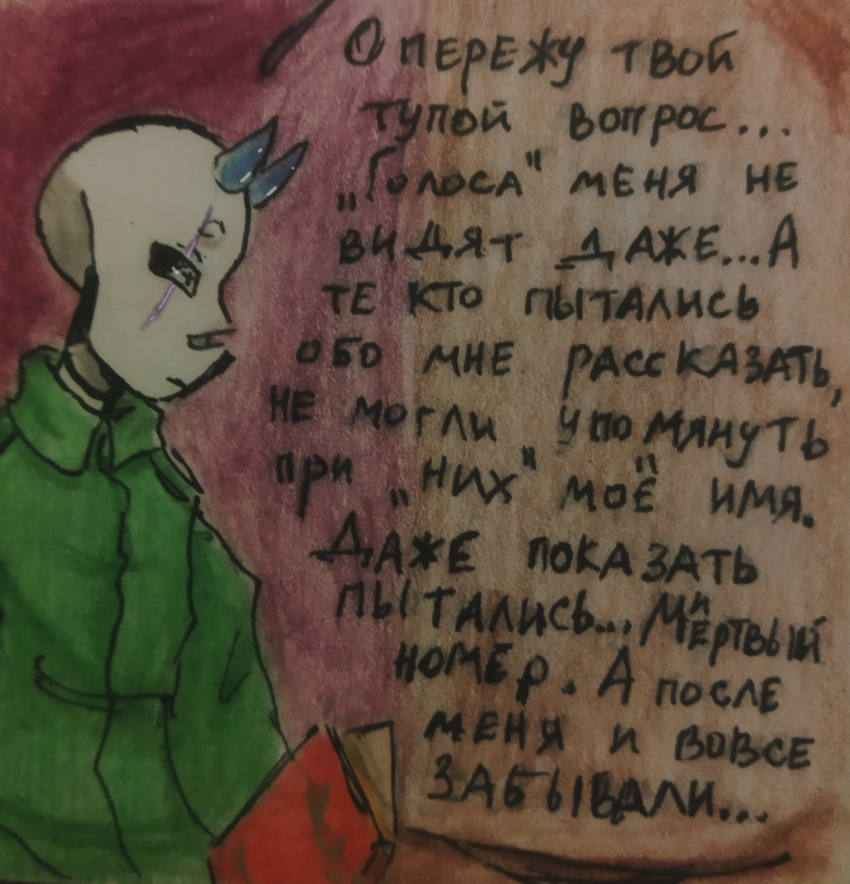 Опережу твой
тупой вопрос...
„Голоса" меня не
видят даже...А
те кто пытались
обо мне рассказать,
не могли упомянуть
при „них" моё имя.
Даже показать
пытались... Мёртвый
номер. А после
меня и вовсе
забывали...